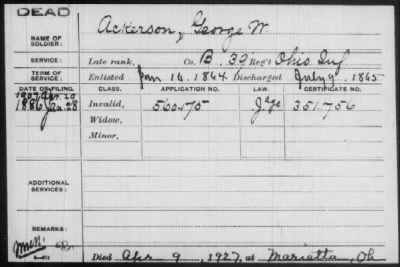 DEAD
NAME OF SOLDIER: Ackerson, George W.
SERVICE: Late rank, Co. B. 39 Reg't Ohio Inf
TERM OF SERVICE: Enlisted Jan 16, 1864 Discharged July 9, 1865
DATE OF FILING. CLASS. APPLICATION NO. LAW. CERTIFICATE NO.
1907
1886 Jan. 28 Invalid, 560475 351.756
Widow,
Minor,
ADDITIONAL SERVICES:
REMARKS:
Died Apr 9, 1927, at Marietta, Oh